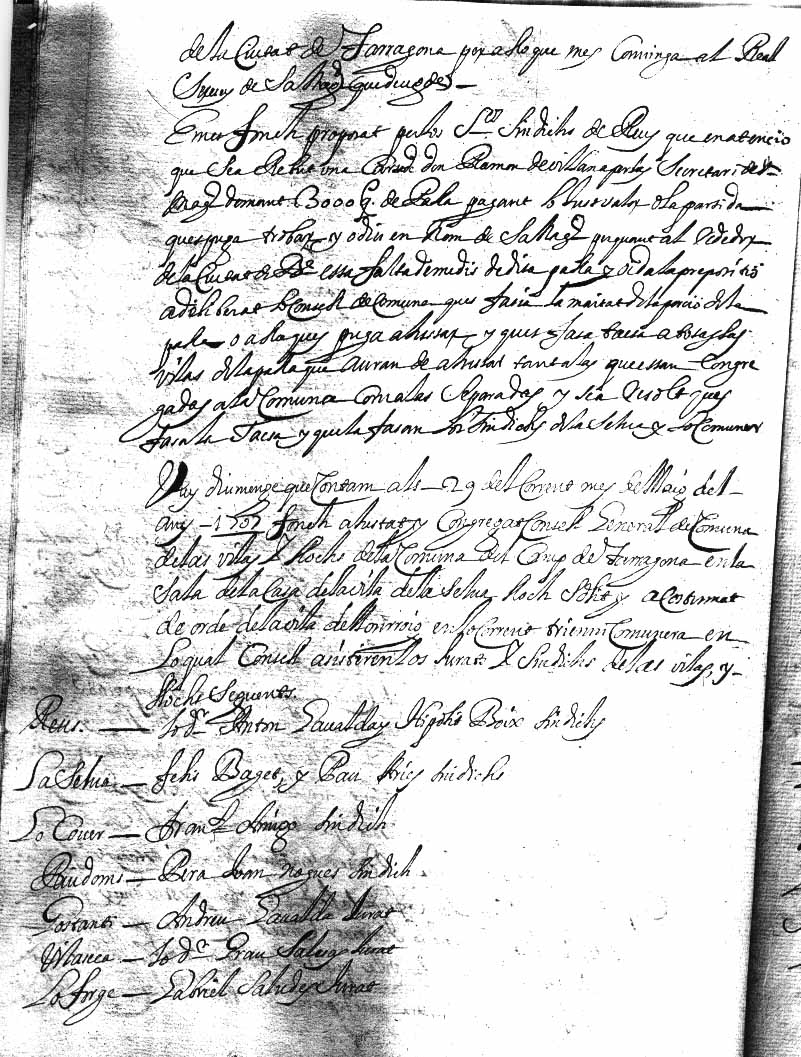 de la Ciutat de Tarragona per a lo que mes Convinga al Real
Servey de Sa Magd que deu gde) —
E mes fonch proposat per los Srs Sindichs de Reus que en atencio
que sea Rebut una Don Ramon de villana perlas Secretari de
Magd demanant 3000 q. de Palla pagant lo just valor o la partida
ques puga trobar y o diu en Nom de Sa Magd al
de la Ciutat de essa falta de medis de dita palla y oida la propositio
a deliberat lo Consell de Comuna ques fasia la maitat de la porcio de la
palla o a lo que es puga ahustar y ques fasa tacsa a totas las
vilas de la palla que auran de ahustar tant a las que estan Congre
gadas a la Comuna Com a las Separades y sia resolt ques
fasa la Tacsa y que la fasan los Sindichs de la Selva y lo Comuner
Vuy diumenge que Contam als — 29 del Corrent mes de Maig del
any — 1707 fonch ahustat y Congregat Consell General de Comuna
de las vilas y llochs de la Comuna del Camp de Tarragona en la
Sala de la Casa de la vila de la Selva lloch Solit y acostumat
de orde de la vila de en lo Corrent trienni Comunera en
Lo qual Consell asistiren los Jurats y Sindichs de las vilas y —
llochs Seguents
Reus. — Lo dr Anton Gavalda y Boix Sindichs
La Selva — Felis Baget, y Pau Sindichs
Lo Cover — Franch Amigo Sindich
Riudoms — Pera Joan Nogues Sindich
Costanti — Andreu Gavalda Jurat
Vilaseca — Lo dr Grau Salesas Jurat
Lo Forge — Gabriel Saludes Jurat